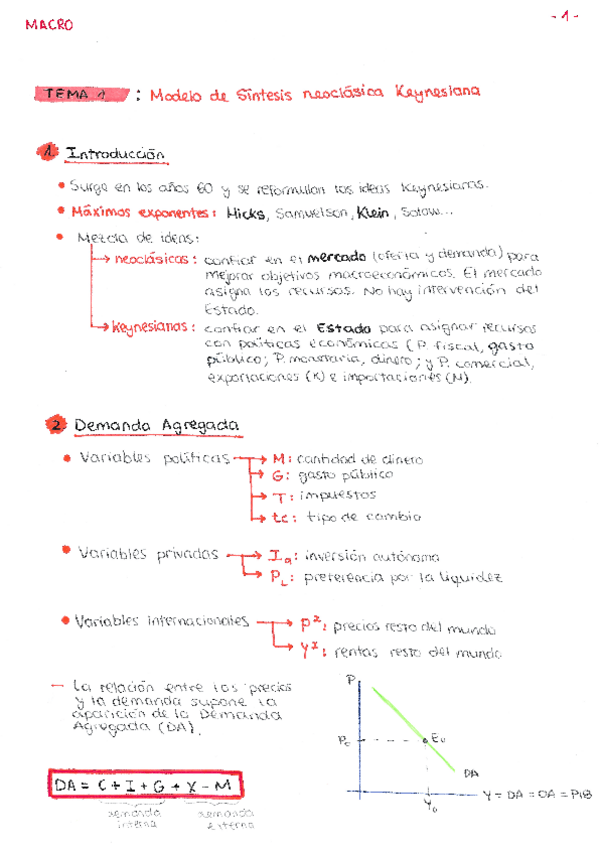 MACRO
-1-
TEMA 1 : Modelo de Síntesis neoclásica Keynesiana
1 Introducción
• Surge en los años 60 y se reformulan las ideas Keynesianas.
• Máximos exponentes: Hicks, Samuelson, Klein, Solow...
• Mezcla de ideas:
neoclásicas: confiar en el mercado (oferta y demanda) para
mejorar objetivos macroeconómicos. El mercado
asigna los recursos. No hay intervención del
Estado.
Keynesianas: confiar en el Estado para asignar recursos
con políticas económicas (P. fiscal, gasto
público; P. monetaria, dinero; y P. comercial,
exportaciones (X) e importaciones (M).
2 Demanda Agregada
• Variables políticas → M: cantidad de dinero
G: gasto público
T: impuestos
tc: tipo de cambio
• Variables privadas → Ia: inversión autónoma
PL: preferencia por la liquidez
• Variables internacionales → P*: precios resto del mundo
Y*: rentas resto del mundo
— La relación entre los precios
y la demanda supone la
aparición de la Demanda
Agregada (DA).
DA = C + I + G + X - M
demanda interna
demanda externa
P
P₀
E₀
DA
Y₀
Y = DA = OA = PIB